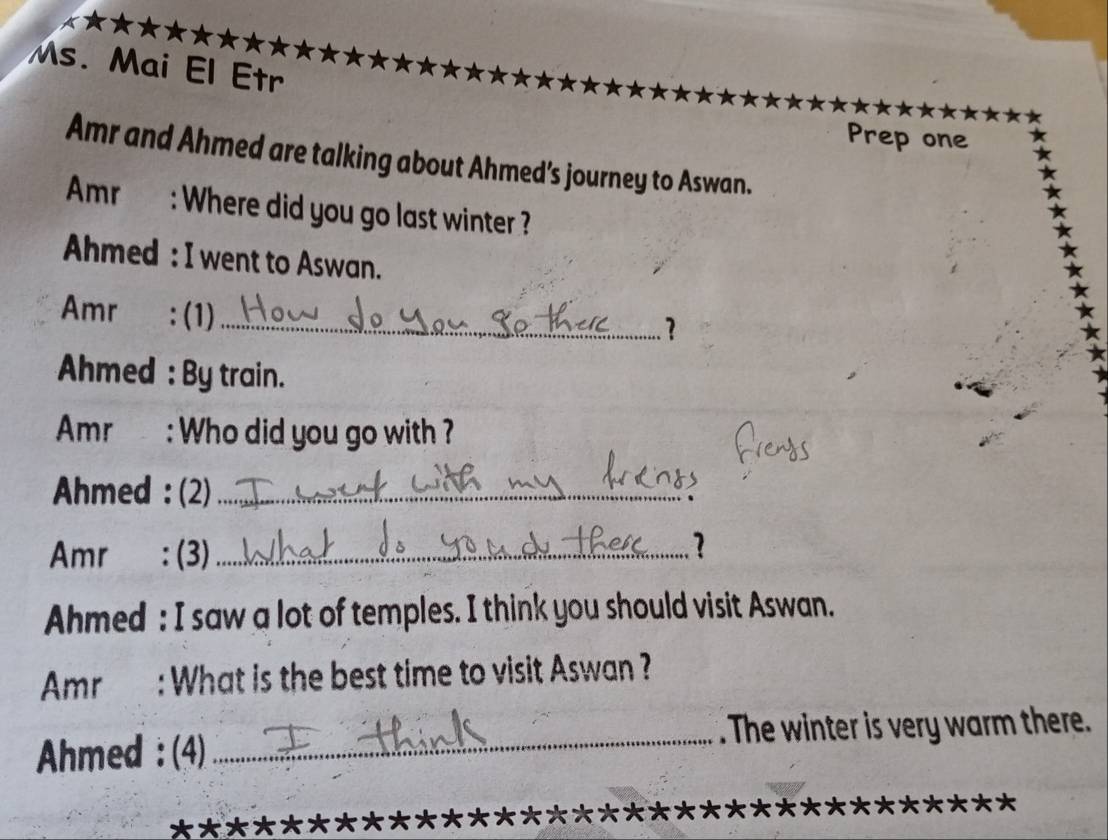 Ms. Mai El Etr
Prep one
Amr and Ahmed are talking about Ahmed's journey to Aswan.
Amr : Where did you go last winter ?
Ahmed : I went to Aswan.
Amr : (1) How do you go there ?
Ahmed : By train.
Amr : Who did you go with ?
frengs
Ahmed : (2) I went with my frengs .
Amr : (3) What do you do there ?
Ahmed : I saw a lot of temples. I think you should visit Aswan.
Amr : What is the best time to visit Aswan ?
Ahmed : (4) I think . The winter is very warm there.